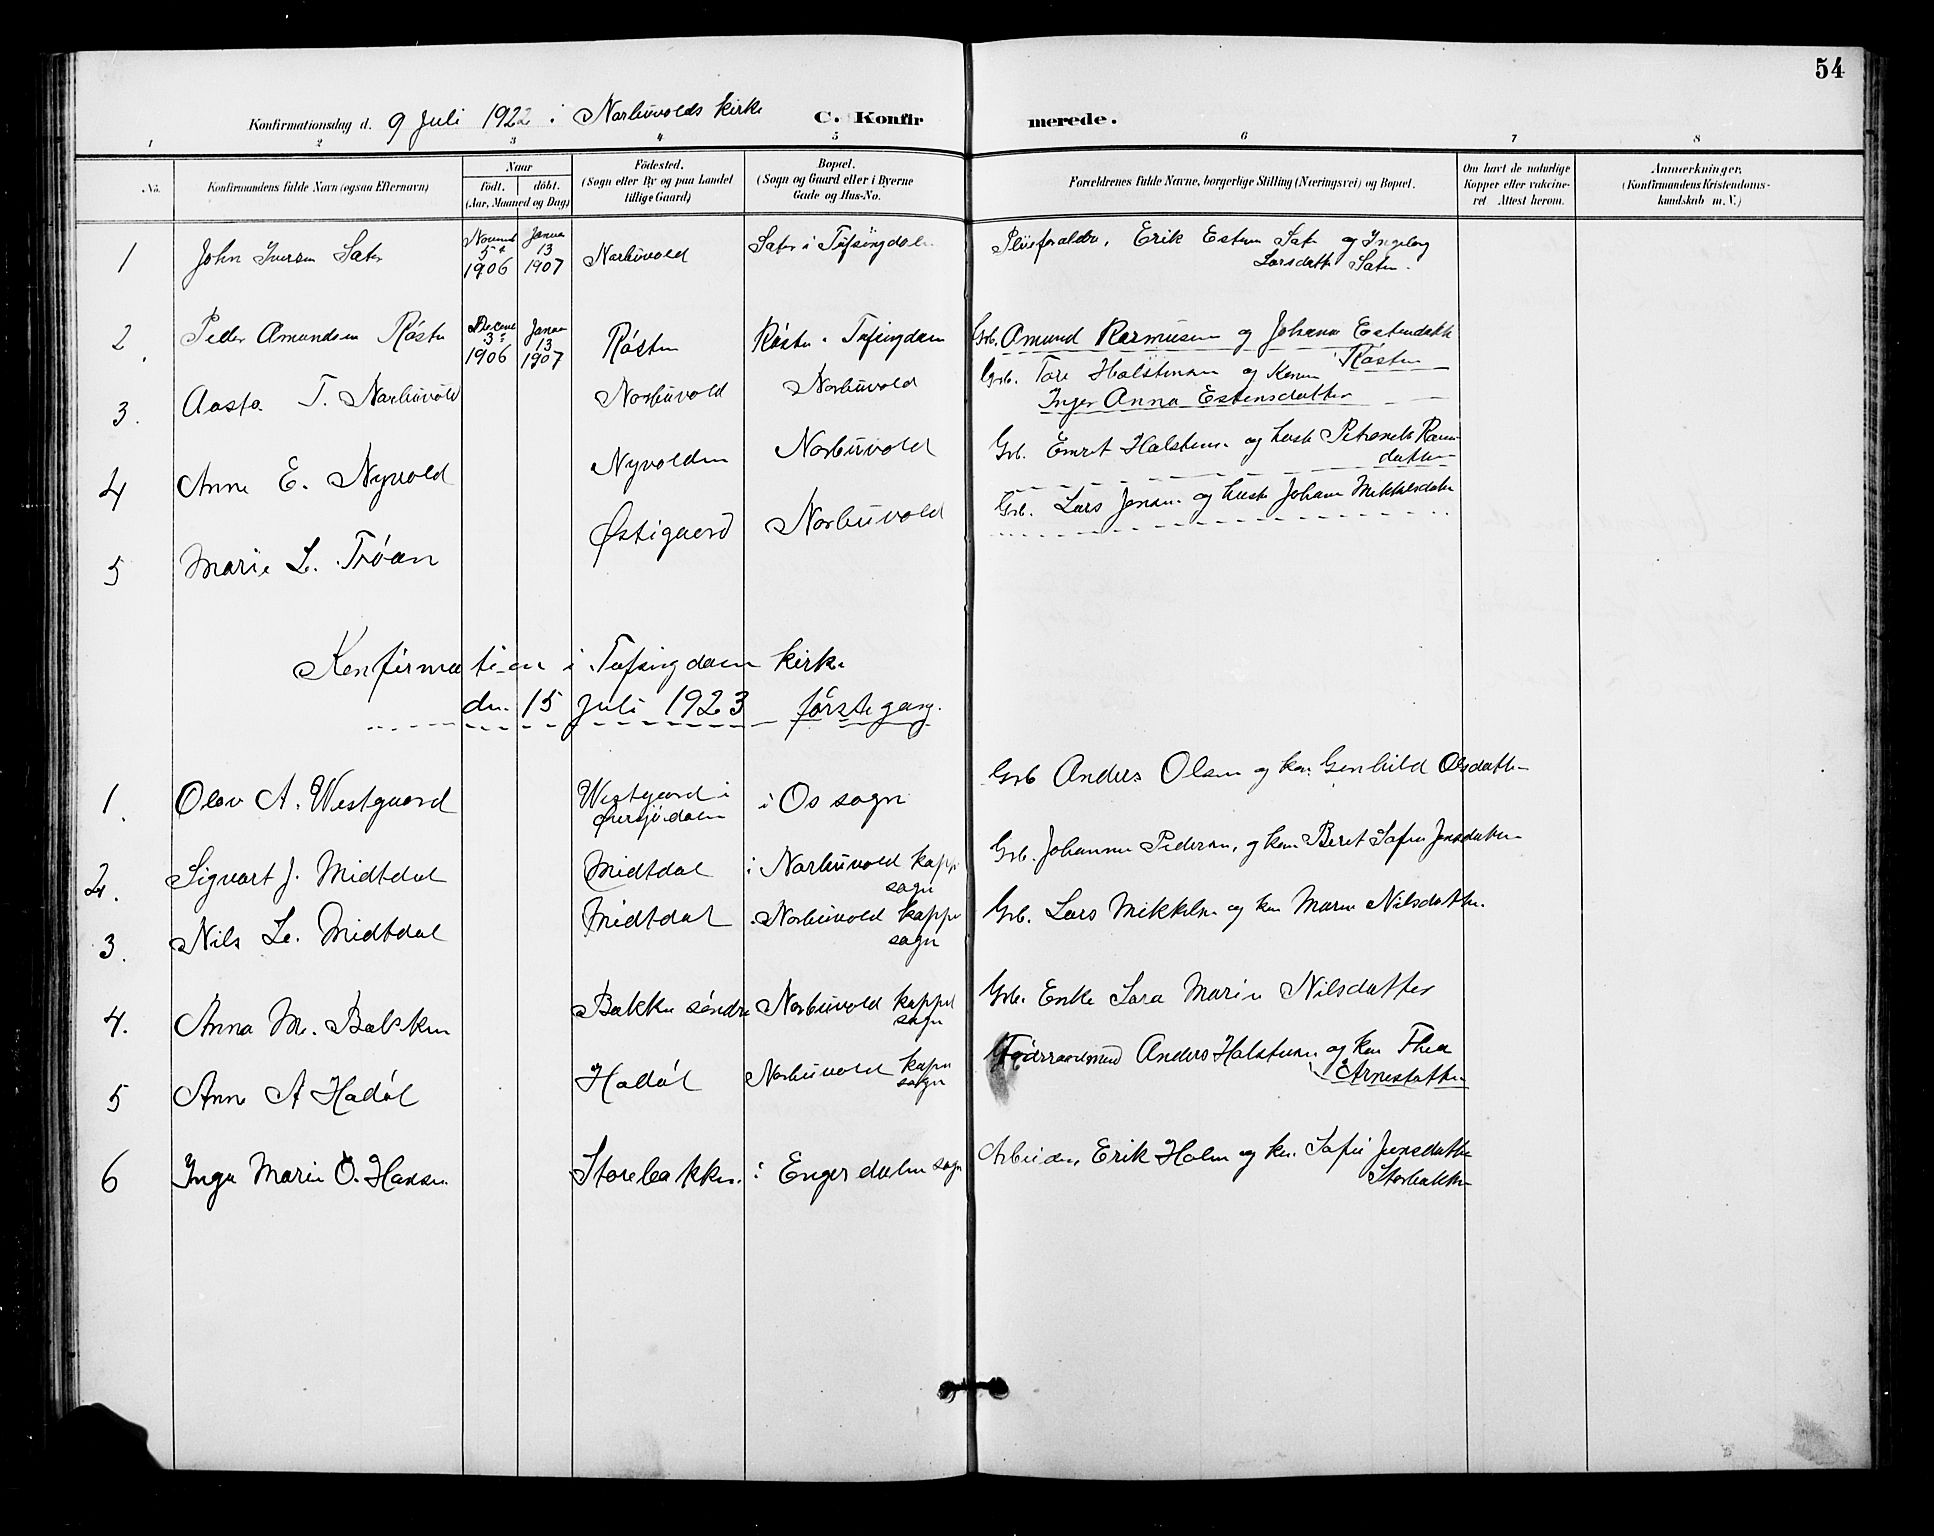 54
Konfirmationsdag d. 9 Juli 1922 i Narbuvolds kirke C. Konfir merede.
1 2 3 4 5 6 7 8
No. Konfirmandens fulde Navn (ogsaa Efternavn) Naar födt. döbt. (Aar, Maaned og Dag) Födested. (Sogn eller By og paa Landet tillige Gaard.) Bopæl. (Sogn og Gaard eller i Byerne Gade og Hus-No. Forældrenes fulde Navne, borgerlige Stilling (Næringsvei) og Bopæl. Om havt de naturlige Kopper eller vakcineret Attest herom. Anmærkninger. (Konfirmandens Kristendomskundskab m. V.)
1 John Iversen Sæter 5 1906 Januar 13 1907 Narbuvold Sæter i Tufsingdalen Pleieforældre, Erik Estensen Sæter og Ingeborg
Larsdatter Sæter.
2. Peder Amundsen Røsten 3 1906 Januar 13 1907 Røsten Røsten i Tufsingdalen Grb. Amund Rasmusen og Johanna Estensdatter
Røsten
3. Aasta T. Narbuvold Narbuvold Narbuvold Grb. Tore Halstensen og Konen
Inger Anna Estensdatter
4 Anne E. Nyvold Nyvolden Narbuvold Grb. Emret Halstensen og hust. Petronele
datter
5 Marie L. Trøan Østigaard Narbuvold Grb. Lars Jonsen og hust Johanne Mikkelsdatter
Konfirmation i Tufsingdalen kirke
den 15 Juli 1923 første gang.
1. Olav A. Westgaard Westgaard i
Øversjødalen i Os sogn Grb Anders Olsen og kone Gunhild Olsdatter
2. Sigvart J. Midtdal Midtdal i Narbuvold kapp.
sogn Grb. Johannes Pedersen, og kone Beret Sofie Jensdatter
3. Nils L. Midtdal Midtdal Narbuvold kappel
sogn Grb. Lars Mikkelsen og kone Maren Nilsdatter.
4. Anna M. Bakken Bakken søndre Narbuvold kappel
sogn Grb. Enke Sara Marie Nilsdatter
5 Anne A Hadøl Hadøl Narbuvold kapel
sogn Føderaadsmand Anders Halstensen og kone Thea
Arnesdatter
6 Inga Marie O. Hansen Storebakken i Engerdalen sogn Arbeider, Erik Holm og kone Sofie Jensdatter
Storbakken